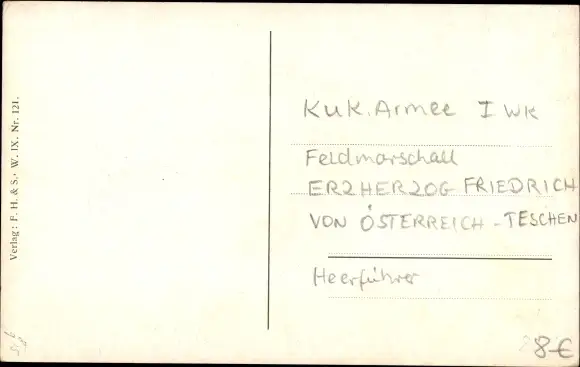 Verlag: F. H. & S.· W. IX. Nr. 121.
KuK. Armee I WK
Feldmarschall
ERZHERZOG FRIEDRICH
VON ÖSTERREICH - TESCHEN
Heerführer
8€